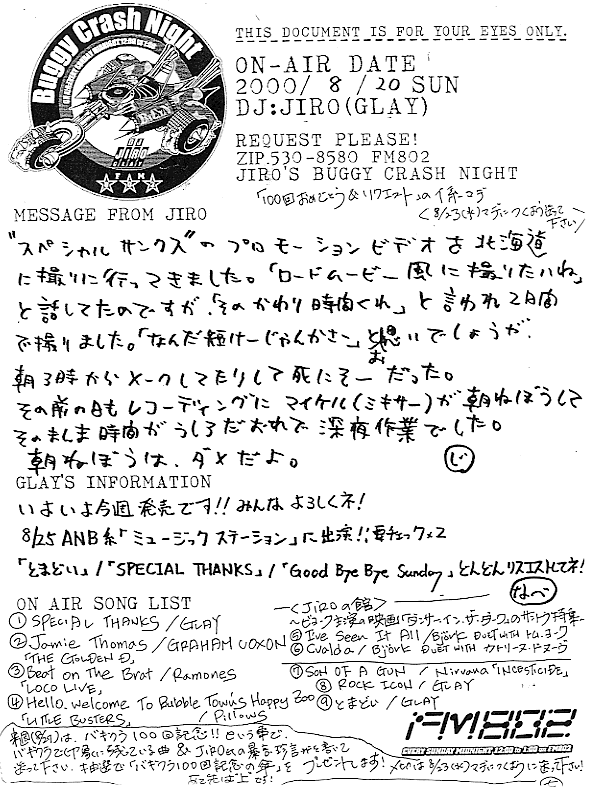 Buggy Crash Night
THIS DOCUMENT IS FOR YOUR EYES ONLY.
ON-AIR DATE
2000/ 8 / 20 SUN
DJ:JIRO(GLAY)
REQUEST PLEASE!
ZIP.530-8580 FM802
JIRO'S BUGGY CRASH NIGHT
「100回おめでとう&リクエスト」の係まで
<8/23(水)までにつくよう送って下さい>
MESSAGE FROM JIRO
"スペシャルサンクス"のプロモーションビデオを北海道
に撮りに行ってきました。「ロードムービー風に撮りたいね」
と話してたのですが、「そのかわり時間くれ」と言われ2日間
で撮りました。「なんだ短けーじゃんかさ」と思いでしょうが、
お
朝3時からメークしてたりして死にそーだった。
その前の日もレコーディングにマイケル(ミキサー)が朝ねぼうして
そのまんま時間がうしろだおれで深夜作業でした。
朝ねぼうは、ダメだよ。 じ
GLAY'S INFORMATION
いよいよ今週発売です!! みんなよろしくネ!
8/25 ANB系「ミュージックステーション」に出演!! 要チェック×2
「とまどい」/「SPECIAL THANKS」/「Good Bye Bye Sunday」どんどんリクエストしてネ!
なべ
ON AIR SONG LIST
① SPECIAL THANKS / GLAY
② Jamie Thomas / GRAHAM COXON
「THE GOLDEN D」
③ Beat on The Brat / Ramones
「LOCO LIVE」
④ Hello, Welcome To Bubble Town's Happy Zoo
「LITTLE BUSTERS」 / Pillows
<JIROの館>
〜ビョーク主演の映画「ダンサー・イン・ザ・ダーク」のサントラ特集〜
⑤ I've Seen It All / Björk DUET WITH トム・ヨーク
⑥ Cvalda / Björk DUET WITH カトリーヌ・ドヌーヴ
⑦ SON OF A GUN / Nirvana「INCESTICIDE」
⑧ ROCK ICON / GLAY
⑨ とまどい / GLAY
FM802
EVERY SUNDAY MIDNIGHT 12:00 to 1:00 on FM802
来週(8/27)は、バギクラ100回記念!! という事で、
バギクラで印象に残っている曲 & JIROの暴言・珍言を書いて
送って下さい。抽選で「バギクラ100回記念の年」をプレゼントします! 〆切は8/23(水)までにつくように送って下さい!
宛先は上です!